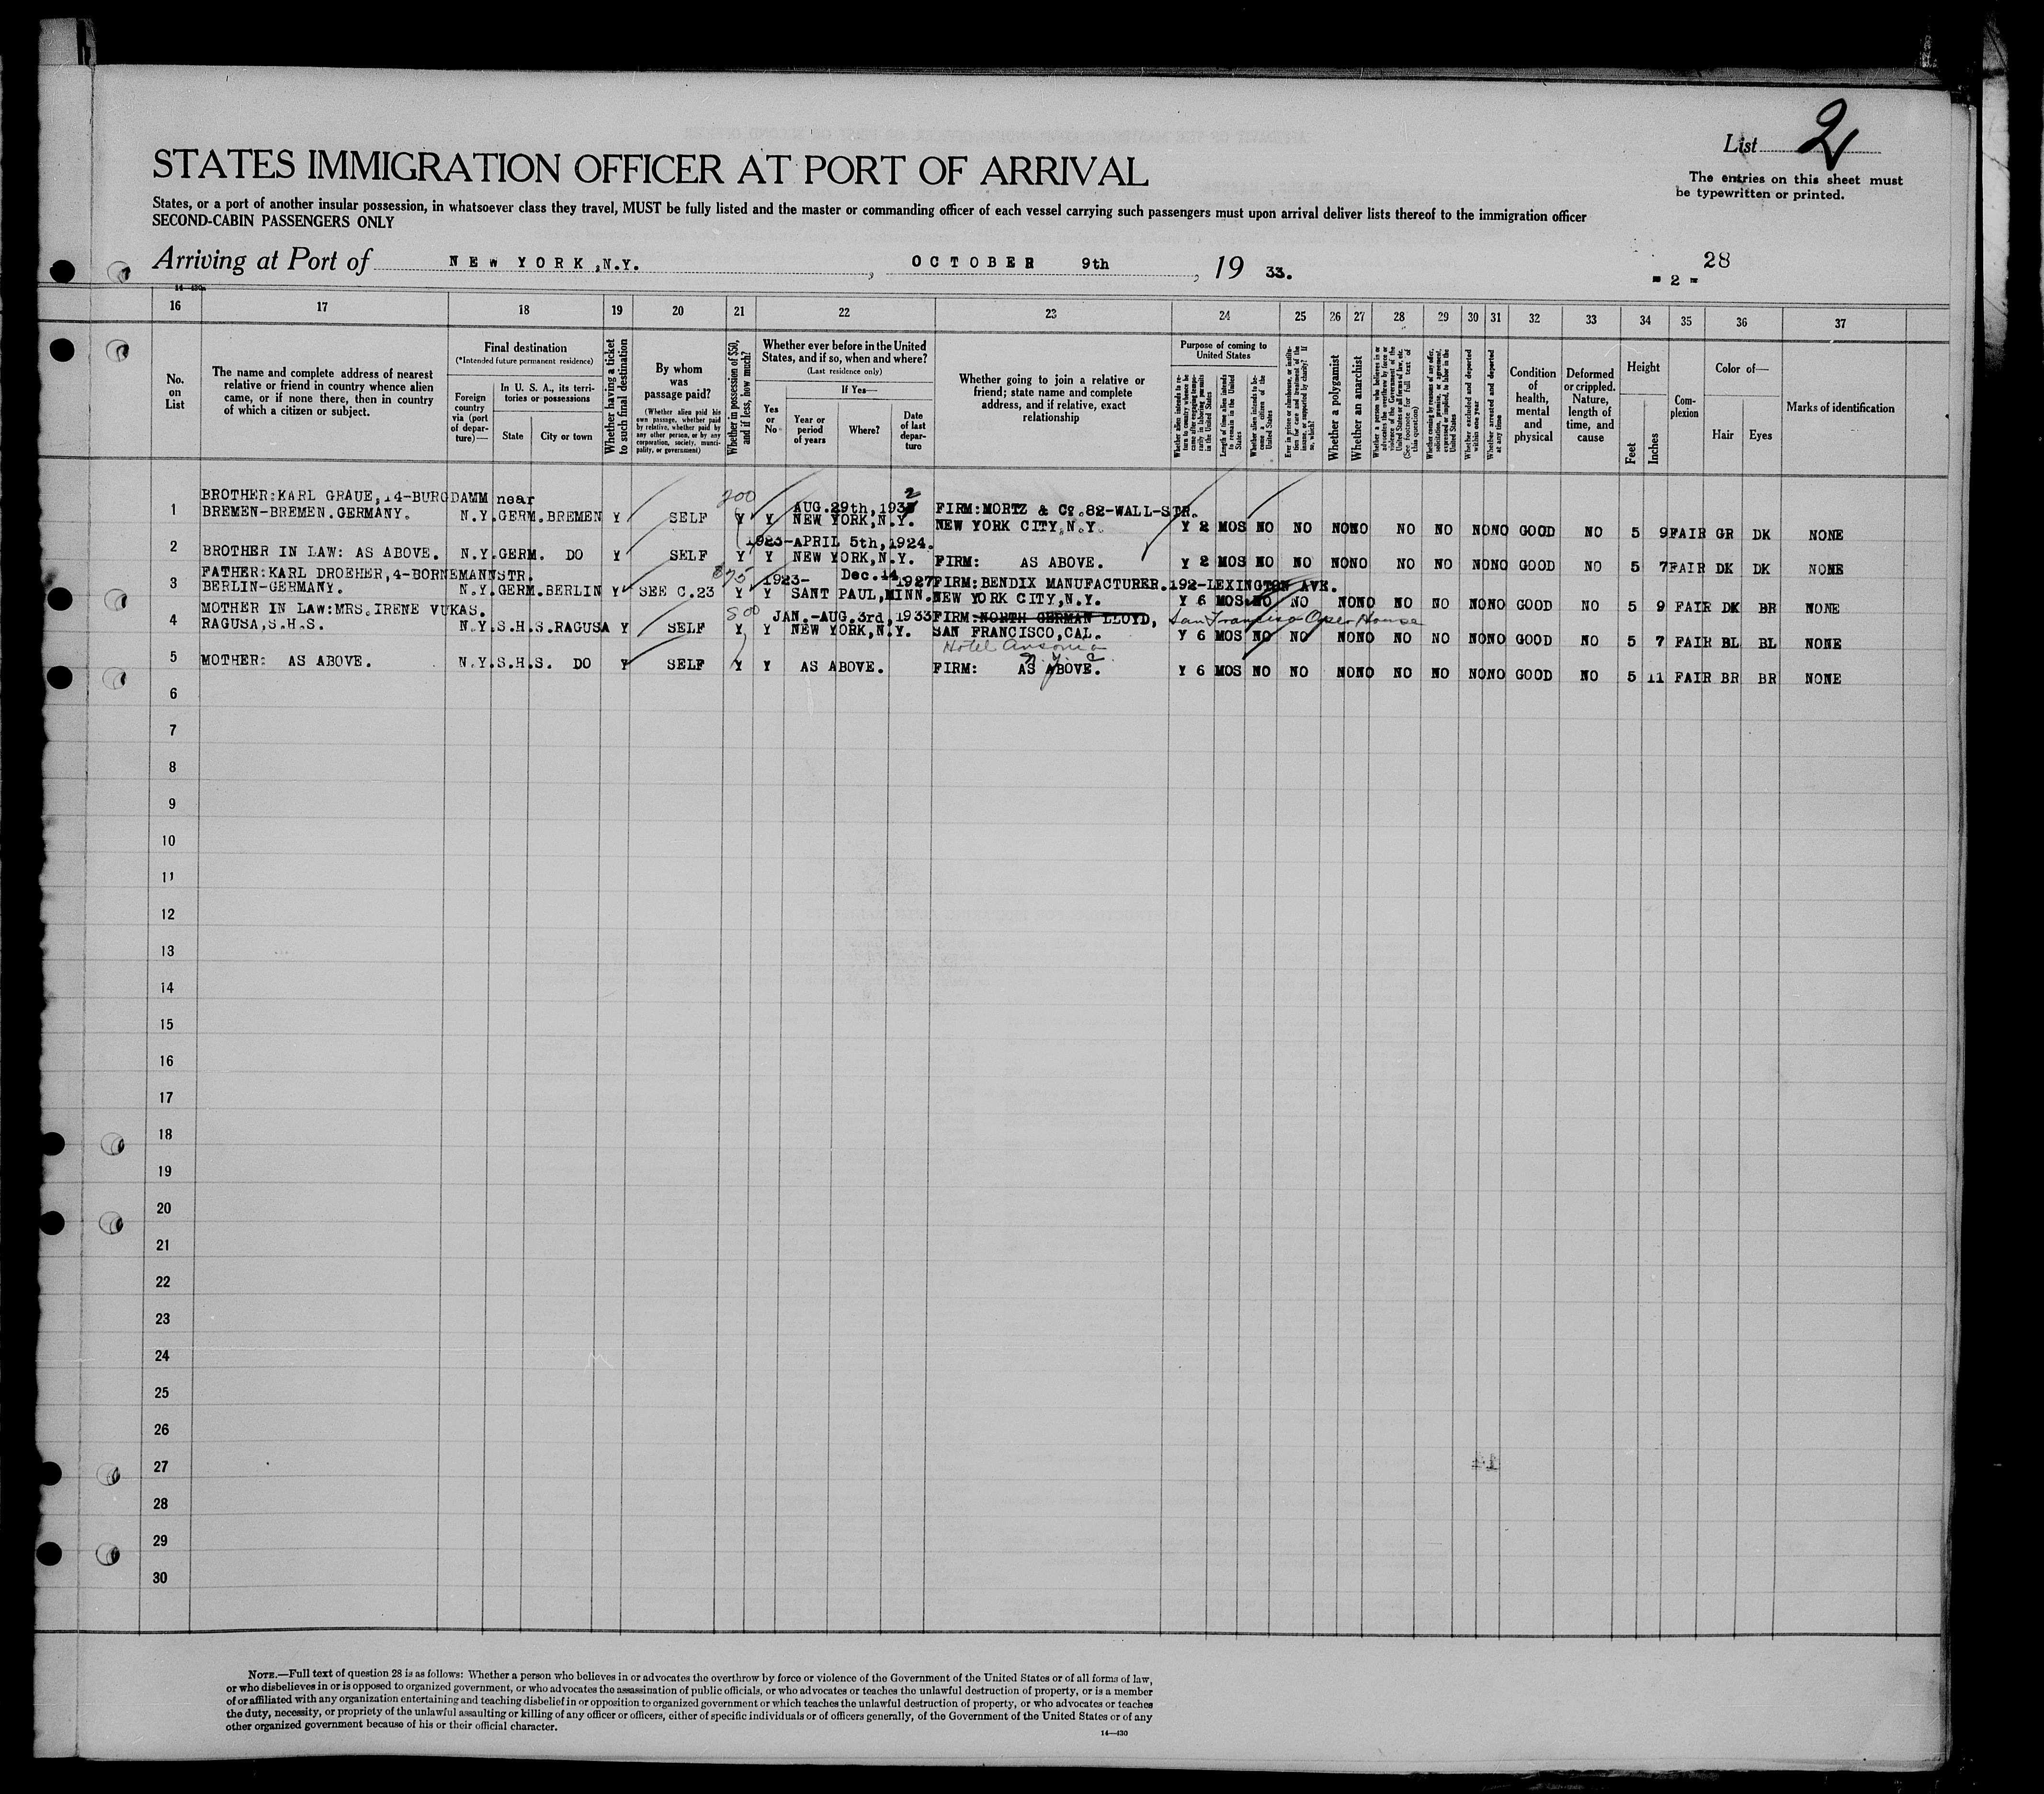 List 2
The entries on this sheet must
be typewritten or printed.
STATES IMMIGRATION OFFICER AT PORT OF ARRIVAL
States, or a port of another insular possession, in whatsoever class they travel, MUST be fully listed and the master or commanding officer of each vessel carrying such passengers must upon arrival deliver lists thereof to the immigration officer
SECOND-CABIN PASSENGERS ONLY
Arriving at Port of NEW YORK, N.Y., OCTOBER 9th, 19 33.
28
- 2 -
16 17 18 19 20 21 22 23 24 25 26 27 28 29 30 31 32 33 34 35 36 37
No. on List
The name and complete address of nearest relative or friend in country whence alien came, or if none there, then in country of which a citizen or subject.
Final destination
(*Intended future permanent residence)
Foreign country via (port of departure)—
In U. S. A., its territories or possessions
State
City or town
Whether having a ticket to such final destination
By whom was passage paid?
(Whether alien paid his own passage, whether paid by relative, whether paid by any other person, or by any corporation, society, municipality, or government)
Whether in possession of $50, and if less, how much?
Whether ever before in the United States, and if so, when and where?
(Last residence only)
If Yes—
Yes or No
Year or period of years
Where?
Date of last departure
Whether going to join a relative or friend; state name and complete address, and if relative, exact relationship
Purpose of coming to United States
Whether alien intends to return to country whence he came after engaging temporarily in laboring pursuits in the United States
Length of time alien intends to remain in the United States
Whether alien intends to become a citizen of the United States
Ever in prison or almshouse, or institution for care and treatment of the insane, or supported by charity? If so, which?
Whether a polygamist
Whether an anarchist
Whether a person who believes in or advocates the overthrow by force or violence of the Government of the United States or all forms of law, etc. (See footnote for full text of this question)
Whether coming by reason of any offer, solicitation, promise, or agreement, expressed or implied, to labor in the United States
Whether excluded and deported within one year
Whether arrested and deported at any time
Condition of health, mental and physical
Deformed or crippled. Nature, length of time, and cause
Height
Feet
Inches
Complexion
Color of—
Hair
Eyes
Marks of identification
1 BROTHER: KARL GRAUE, 14-BURGDAMM near 200 AUG. 29th, 193 2 FIRM: MORTZ & Co. 82-WALL-STR.
BREMEN-BREMEN. GERMANY. N.Y. GERM. BREMEN Y SELF Y Y NEW YORK, N.Y. NEW YORK CITY, N.Y. Y 2 MOS NO NO NO NO NO NO NO NO GOOD NO 5 9 FAIR GR DK NONE
1923-APRIL 5th, 1924.
2 BROTHER IN LAW: AS ABOVE. N.Y. GERM. DO Y SELF Y Y NEW YORK, N.Y. FIRM: AS ABOVE. Y 2 MOS NO NO NO NO NO NO NO NO GOOD NO 5 7 FAIR DK DK NONE
3 FATHER: KARL DROEHER, 4-BORNEMANNSTR. 875 1923- Dec. 14 1927 FIRM: BENDIX MANUFACTURER. 192-LEXINGTON AVE.
BERLIN-GERMANY. N.Y. GERM. BERLIN Y SEE C.23 Y Y SANT PAUL, MINN. NEW YORK CITY, N.Y. Y 6 MOS. NO NO NO NO NO NO NO NO GOOD NO 5 9 FAIR DK BR NONE
4 MOTHER IN LAW: MRS. IRENE VUKAS. 800 JAN.-AUG. 3rd, 1933 FIRM: NORTH GERMAN LLOYD, San Francisco Oper House
RAGUSA, S.H.S. N.Y. S.H.S. RAGUSA Y SELF Y Y NEW YORK, N.Y. SAN FRANCISCO, CAL. Y 6 MOS NO NO NO NO NO NO NO NO GOOD NO 5 7 FAIR BL BL NONE
Hotel Ansonia
N.Y. C.
5 MOTHER: AS ABOVE. N.Y. S.H.S. DO Y SELF Y Y AS ABOVE. FIRM: AS ABOVE. Y 6 MOS NO NO NO NO NO NO NO NO GOOD NO 5 11 FAIR BR BR NONE
6
7
8
9
10
11
12
13
14
15
16
17
18
19
20
21
22
23
24
25
26
27
28
29
30
NOTE.—Full text of question 28 is as follows: Whether a person who believes in or advocates the overthrow by force or violence of the Government of the United States or of all forms of law,
or who disbelieves in or is opposed to organized government, or who advocates the assassination of public officials, or who advocates or teaches the unlawful destruction of property, or is a member
of or affiliated with any organization entertaining and teaching disbelief in or opposition to organized government or which teaches the unlawful destruction of property, or who advocates or teaches
the duty, necessity, or propriety of the unlawful assaulting or killing of any officer or officers, either of specific individuals or of officers generally, of the Government of the United States or of any
other organized government because of his or their official character.
14—430